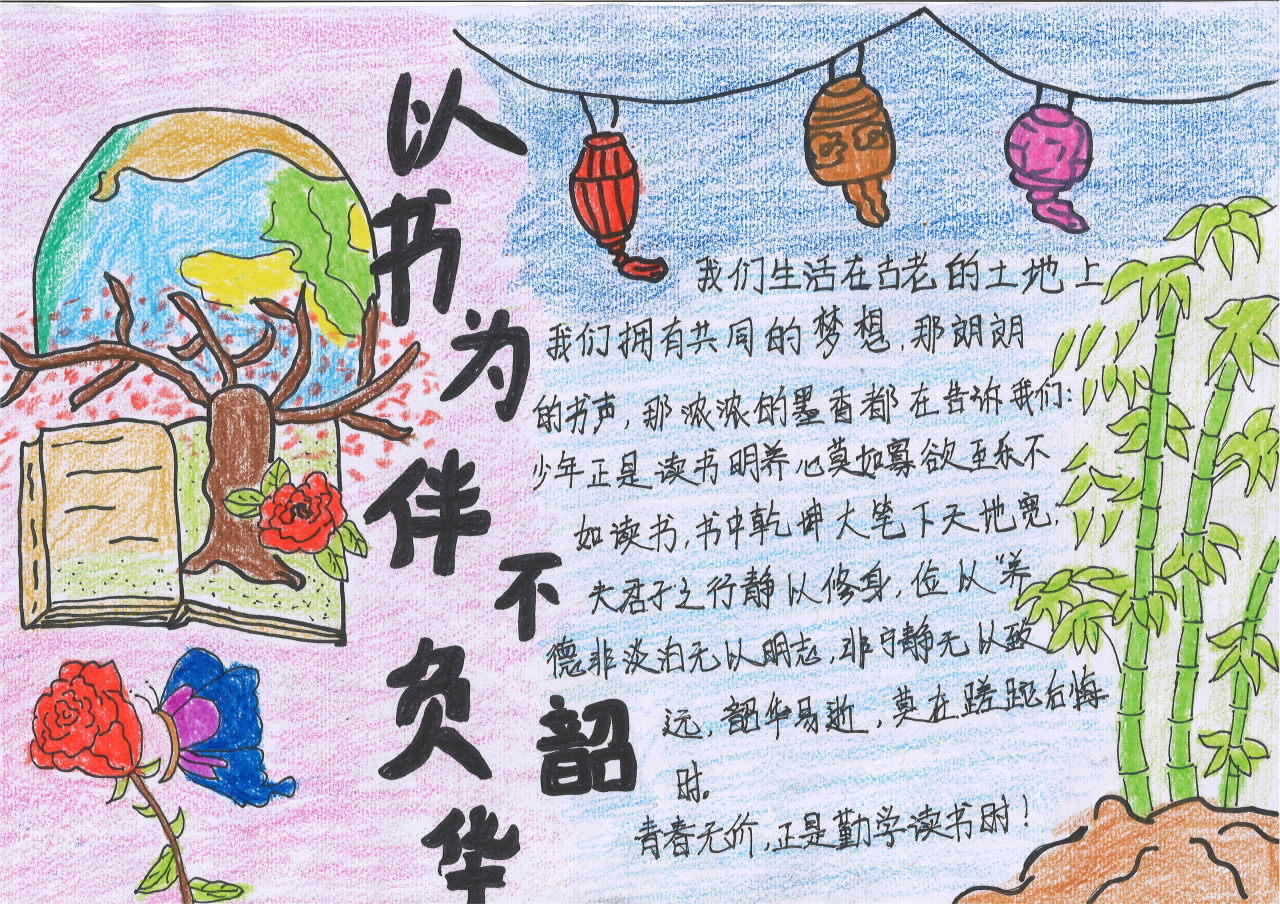 以书为伴不负韶华
我们生活在古老的土地上
我们拥有共同的梦想，那朗朗
的书声，那浓浓的墨香都在告诉我们：
少年正是读书明养心莫如寡欲至乐不
如读书，书中乾坤大笔下天地宽，
夫君子之行静以修身，俭以“养
德非淡泊无以明志，非宁静无以致
远，韶华易逝，莫在蹉跎后悔
时。
青春无价，正是勤学读书时！